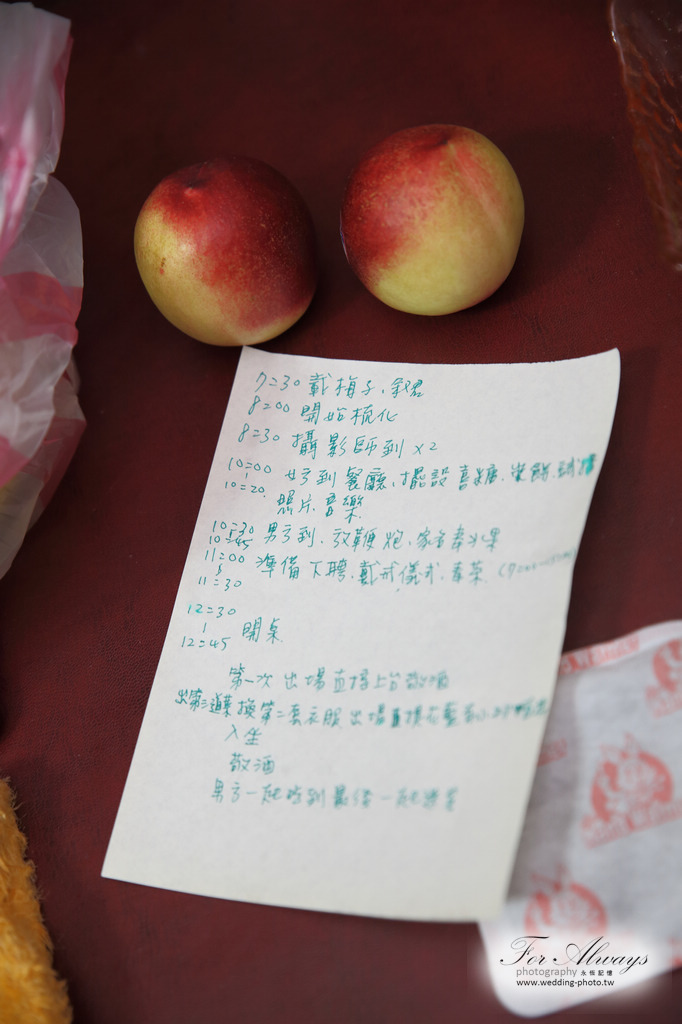 7:30 載梅子、
8:00 開始梳化
8:30 攝影師到 x2
10:00 | 10:20 女方到餐廳、擺設喜糖、
照片、音樂
10:30 | 10:45 男方到、放鞭炮、
11:00 | 11:30 準備下聘、戴戒儀式、奉茶
12:30 | 12:45 開桌
第一次出場直接上台敬酒
出第三道菜換第二套衣服、出場直接
入坐
敬酒
男方一起吃到最後一起
For Always
photography 永恆記憶
www.wedding-photo.tw